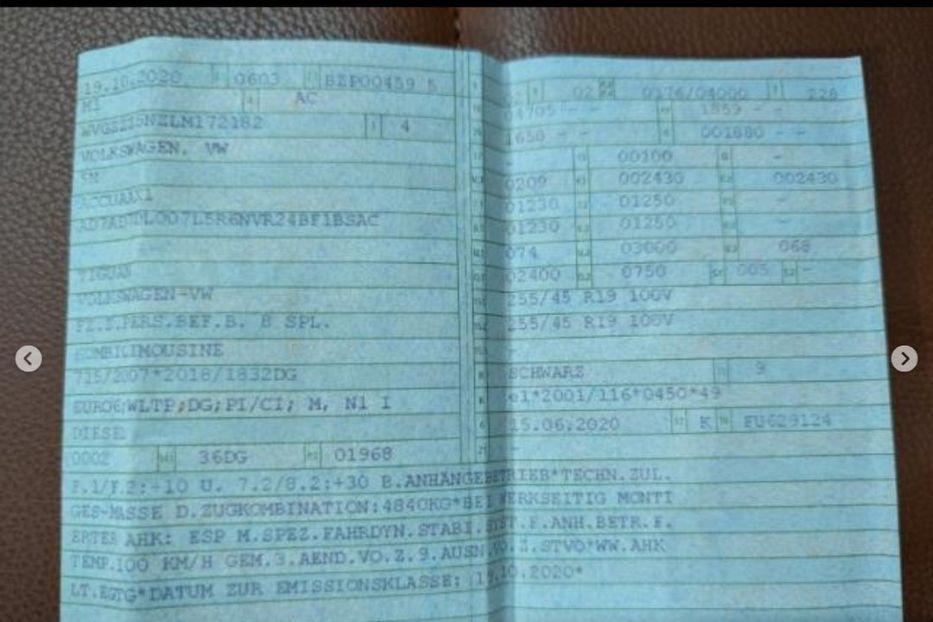 19.10.2020 0603 BEP00459 5
M1 AC
4
VOLKSWAGEN, VW
5N
AD7ABTDL007L5R6NVR24BF1BSAC
TIGUAN
VOLKSWAGEN-VW
FZ.Z.PERS.BEF.B. 8 SPL.
KOMBILIMOUSINE
715/2007*2018/1832DG
EURO6;WLTP;DG;PI/CI; M, N1 I
DIESEL
0002 36DG 01968
02 0176/04000 228
04705 - - 1859 - -
1658 - - 001880 - -
00100 -
0209 002430 002430
01230 01250 -
01230 01250 -
074 03000 068
02400 0750 005 -
255/45 R19 100V
255/45 R19 100V
-
SCHWARZ 9
e1*2001/116*0450*49
15.06.2020 K FU629124
-
F.1/F.2:+10 U. 7.2/8.2:+30 B.ANHÄNGEBETRIEB*TECHN.ZUL.
GES-MASSE D.ZUGKOMBINATION:4840KG*BEI WERKSEITIG MONTI
ERTER AHK: ESP M.SPEZ.FAHRDYN.STABI.SYST.F.ANH.BETR.F.
TEMP.100 KM/H GEM.3.AEND.VO.Z.9.AUSN.VO.Z.STVO*WW.AHK
LT.EGTG*DATUM ZUR EMISSIONSKLASSE: 19.10.2020*